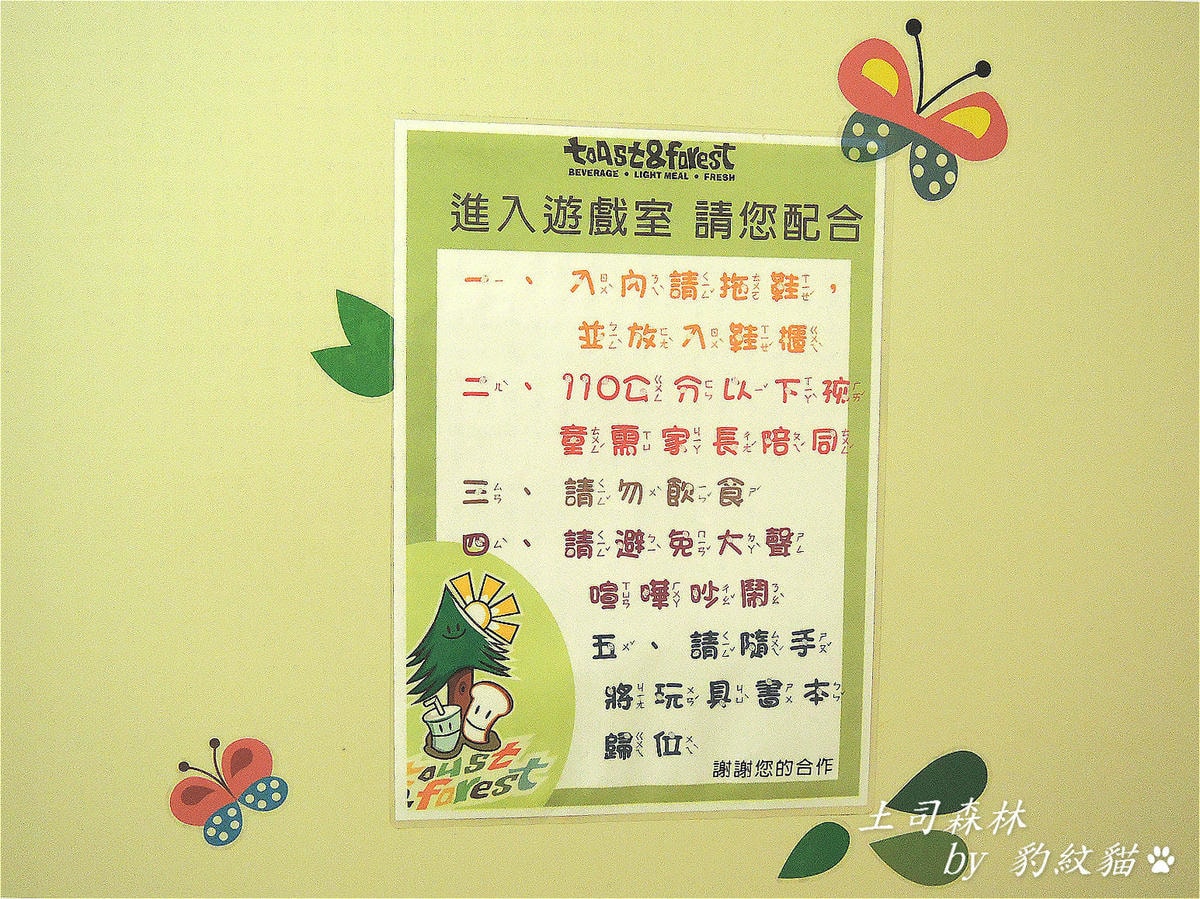 toast&forest
BEVERAGE • LIGHT MEAL • FRESH
進入遊戲室 請您配合
一、 入內請拖鞋，
並放入鞋櫃
二、 110公分以下孩
童需家長陪同
三、 請勿飲食
四、 請避免大聲
喧嘩吵鬧
五、 請隨手
將玩具書本
歸位
謝謝您的合作
toast
&forest
土司森林
by 豹紋貓